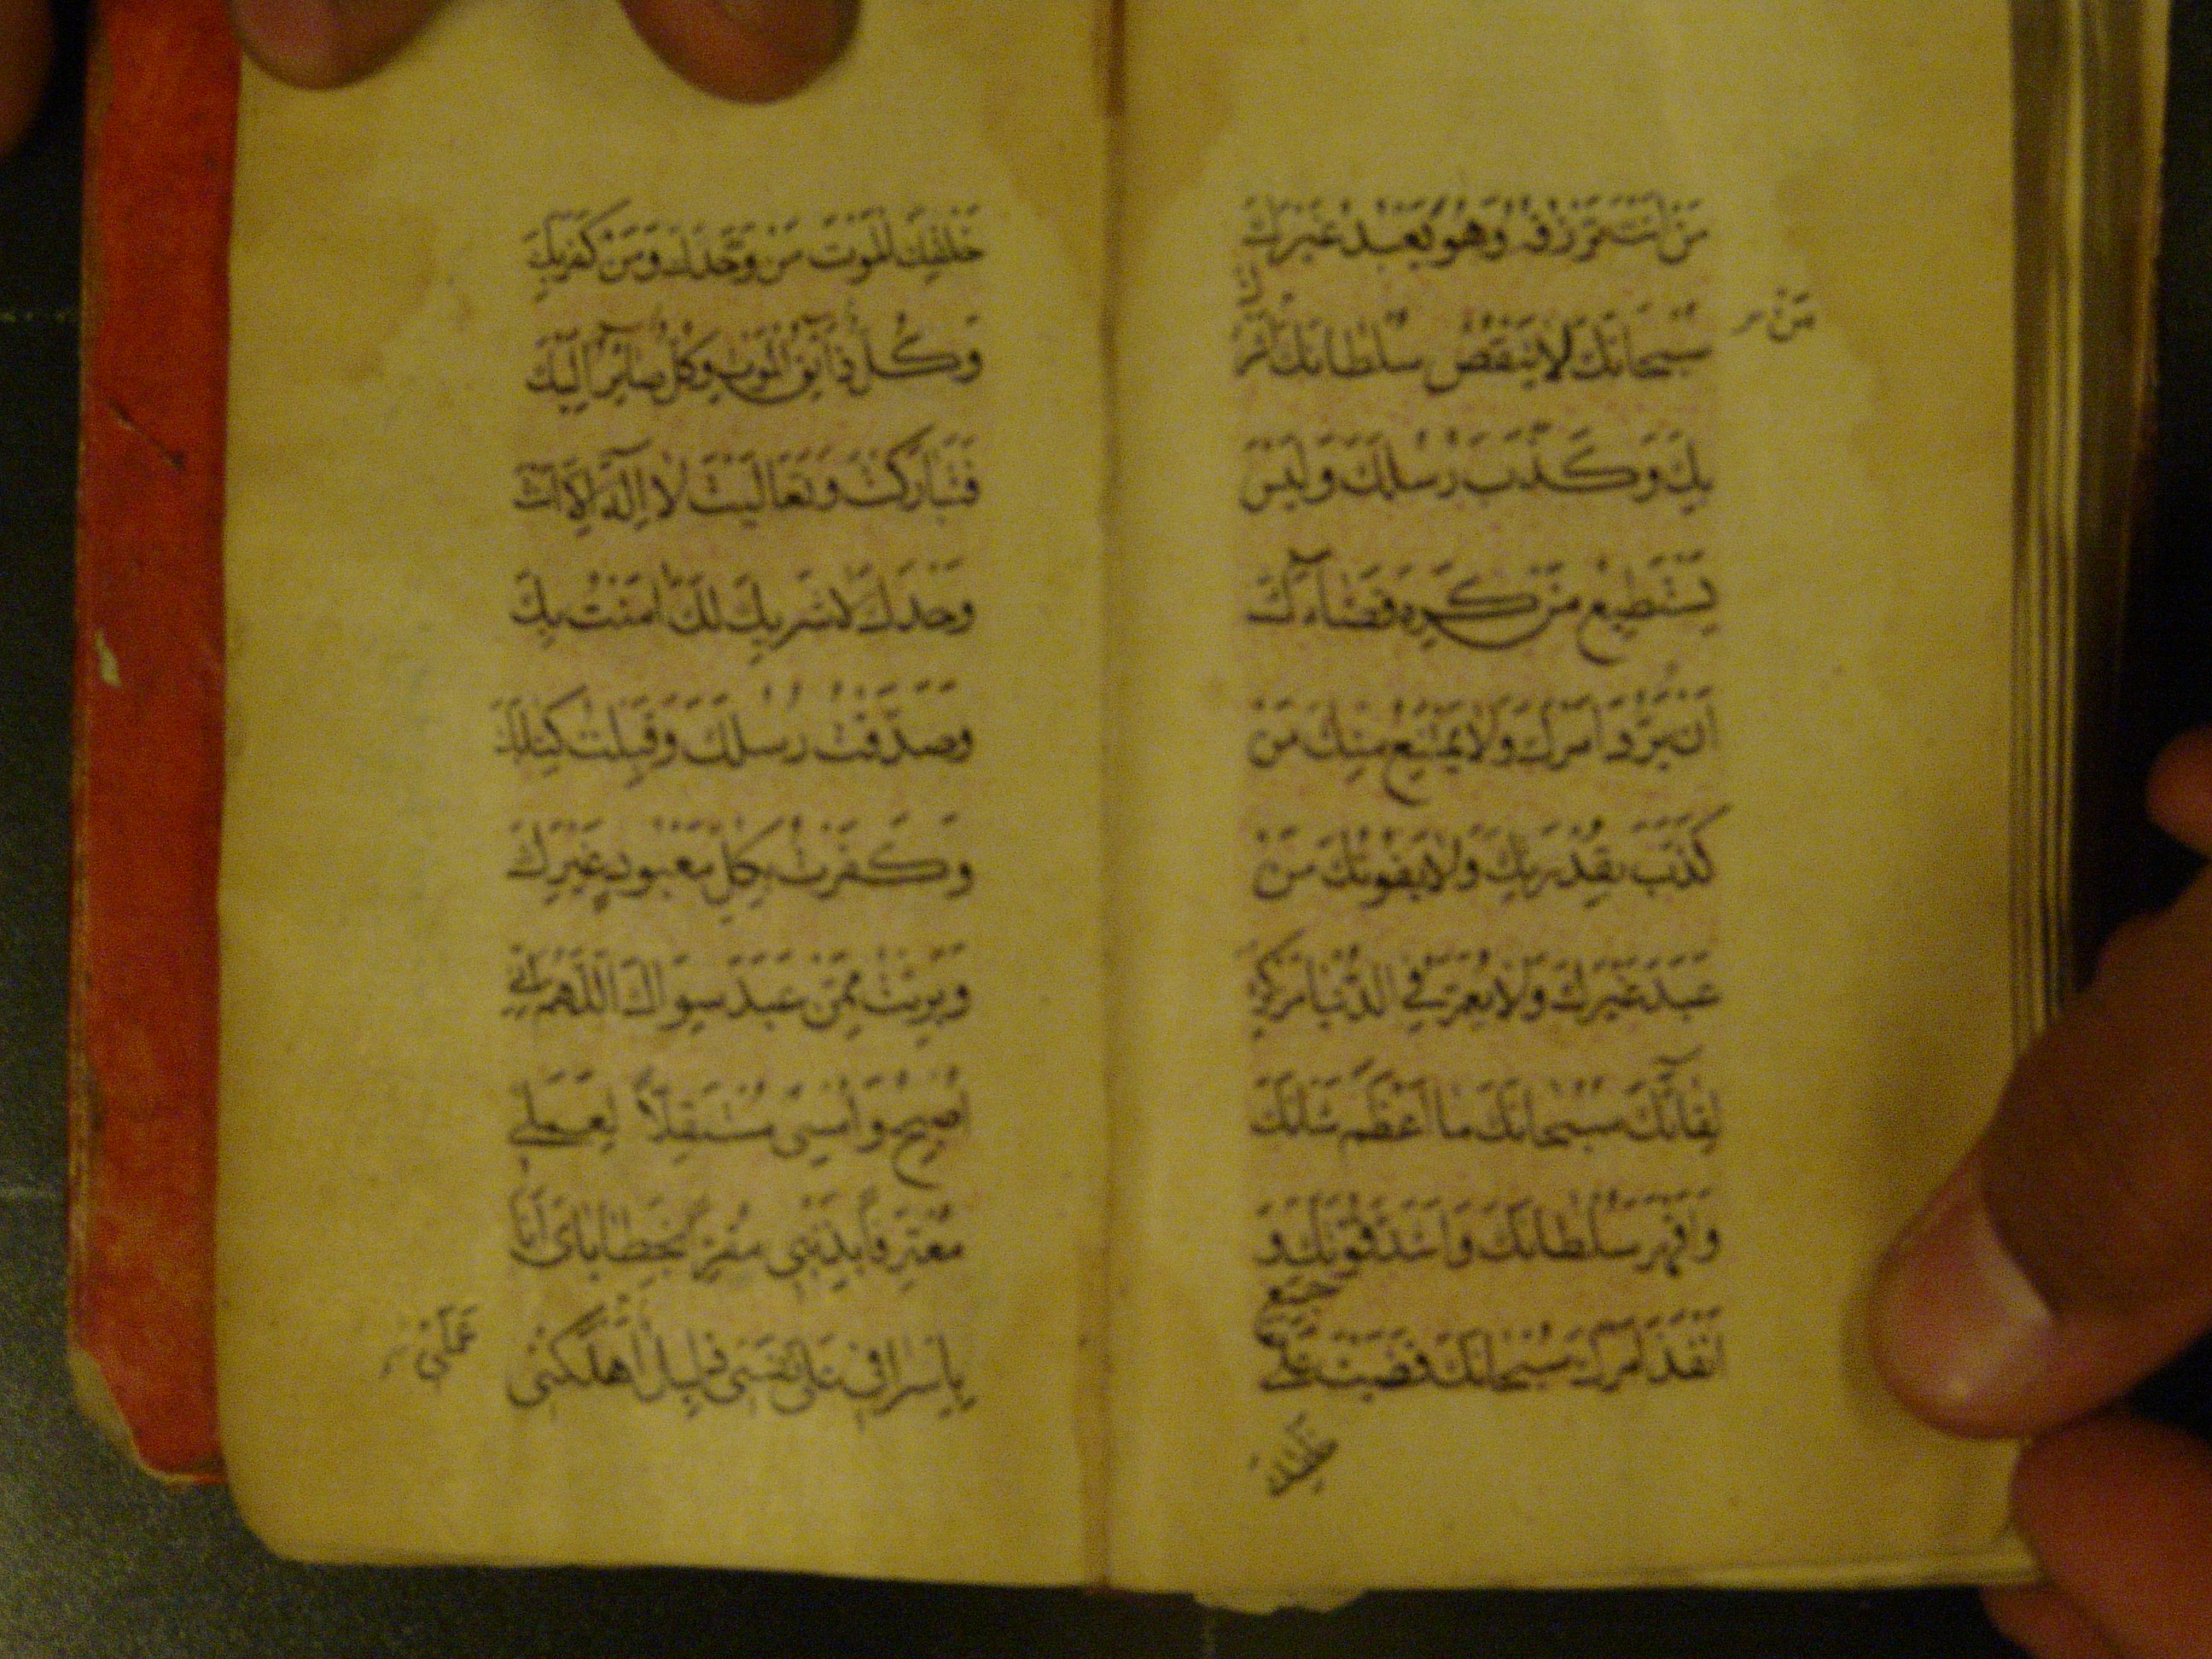 مَنْ اَنْتَ تَرْزُقُهُ وَهُوَ يَعْبُدُ غَيْرَكَ
سُبْحَانَكَ لَا يَنْقُصُ سُلْطَانَكَ مَنْ اَشْرَكَ
بِكَ وَكَذَّبَ رُسُلَكَ وَلَيْسَ
يَسْتَطِيعُ مَنْ كَرِهَ قَضَاءَكَ
اَنْ يَرُدَّ اَمْرَكَ وَلَا يَمْتَنِعُ مِنْكَ مَنْ
كَذَّبَ بِقُدْرَتِكَ وَلَا يَفُوتُكَ مَنْ
عَبَدَ غَيْرَكَ وَلَا يُعَمَّرُ فِي الدُّنْيَا مَنْ كَرِهَ
لِقَائَكَ سُبْحَانَكَ مَا اَعْظَمَ شَأْنَكَ
وَاَقْهَرَ سُلْطَانَكَ وَاَشَدَّ قُوَّتَكَ وَ
اَنْفَذَ اَمْرَكَ سُبْحَانَكَ قَضَيْتَ عَلٰى جَمِيعِ
خَلْقِكَ
خَلْقِكَ الْمَوْتَ مَنْ وَحَّدَكَ وَمَنْ كَفَرَ بِكَ
وَكُلٌّ ذَائِقُ الْمَوْتِ وَكُلٌّ صَائِرٌ اِلَيْكَ
فَتَبَارَكْتَ وَتَعَالَيْتَ لَا اِلٰهَ اِلَّا اَنْتَ
وَحْدَكَ لَا شَرِيكَ لَكَ اٰمَنْتُ بِكَ
وَصَدَّقْتُ رُسُلَكَ وَقَبِلْتُ كِتَابَكَ
وَكَفَرْتُ بِكُلِّ مَعْبُودٍ غَيْرِكَ
وَبَرِئْتُ مِمَّنْ عَبَدَ سِوَاكَ اَللّٰهُمَّ اِنِّي
اُصْبِحُ وَاُمْسِي مُسْتَقِلًّا لِعَمَلِي
مُعْتَرِفًا بِذَنْبِي مُقِرًّا بِخَطَايَايَ اَنَا
بِاِسْرَافِي عَلٰى نَفْسِي ذَلِيلٌ اَهْلَكَنِي
عَمَلِي